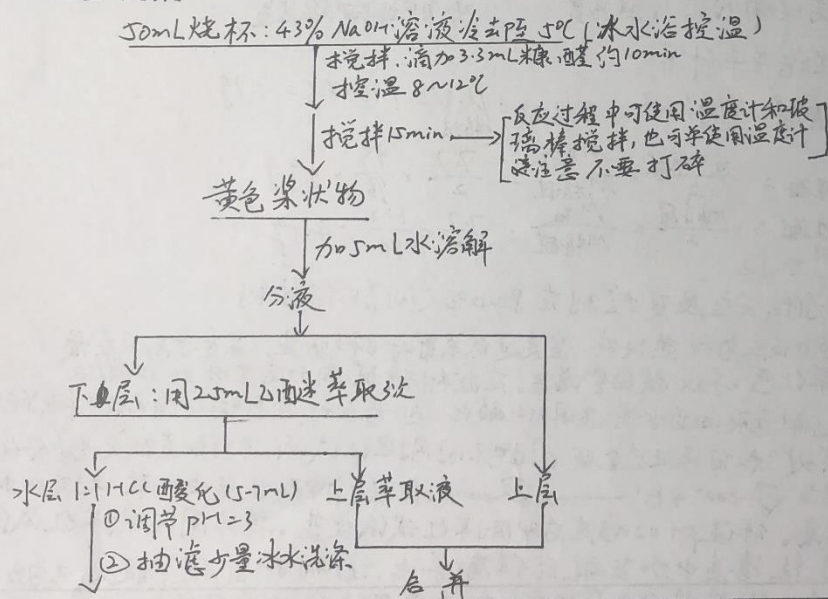 50mL烧杯:43% NaOH溶液冷却至5℃(冰水浴控温)
搅拌.滴加3.3mL糠醛约10min
控温8~12℃
搅拌15min
反应过程中可使用温度计和玻
璃棒搅拌,也可单使用温度计
注意不要打碎
黄色浆状物
加5mL水溶解
分液
下层:用25mL乙醚萃取3次
水层 1:1 HCl酸化(5-7mL)
上层萃取液
上层
①调节pH=3
②抽滤少量冰水洗涤
合并